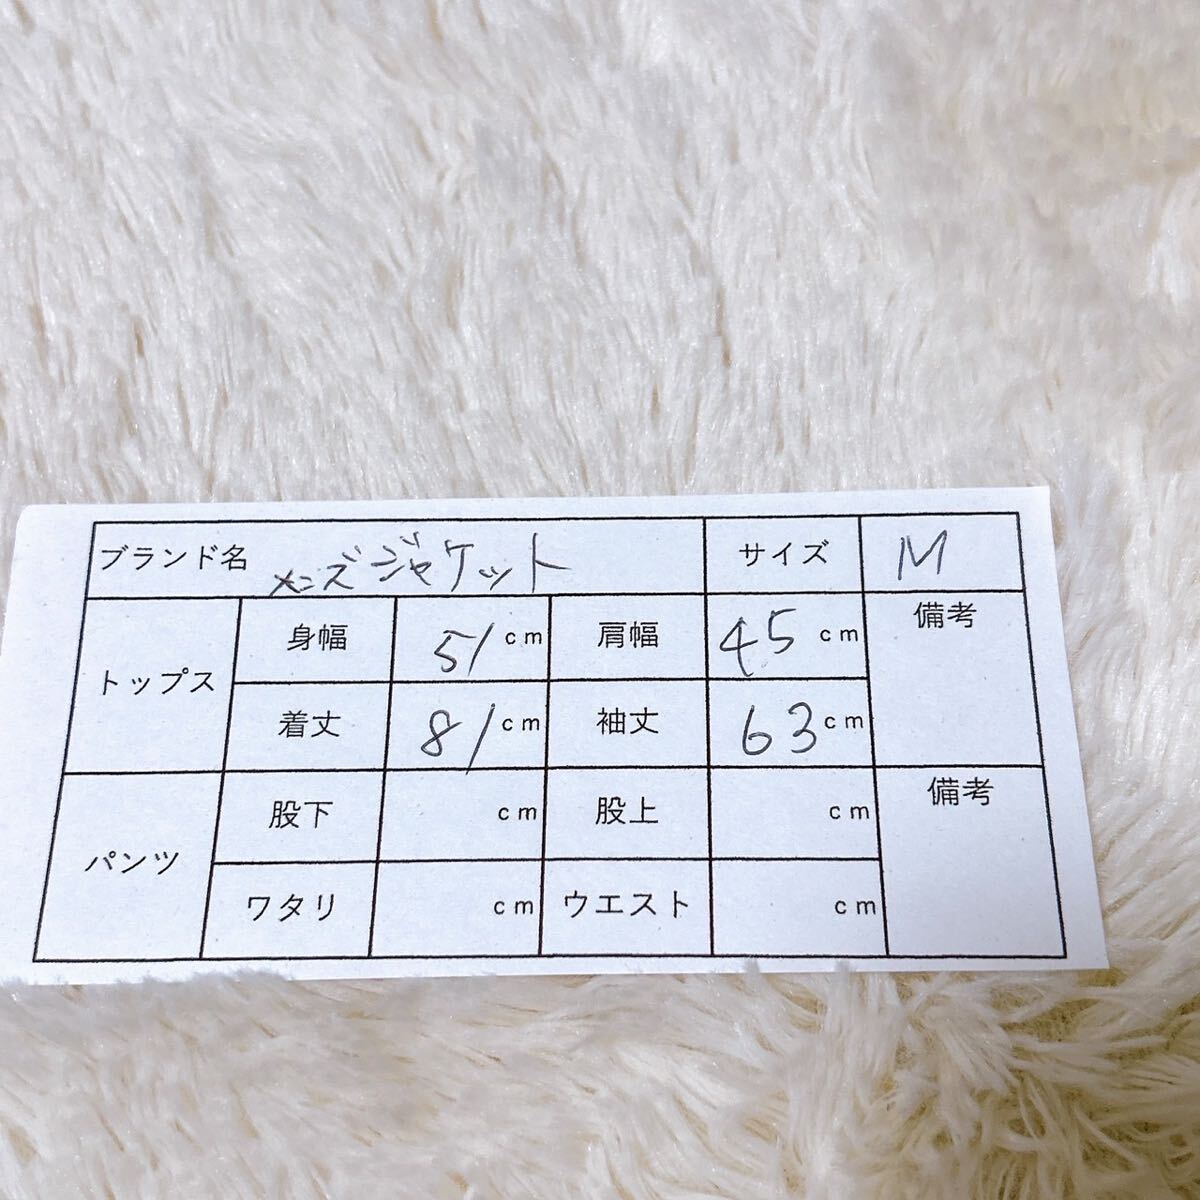 ブランド名 メンズジャケット サイズ M
トップス 身幅 51 cm 肩幅 45 cm 備考
着丈 81 cm 袖丈 63 cm
パンツ 股下 cm 股上 cm 備考
ワタリ cm ウエスト cm